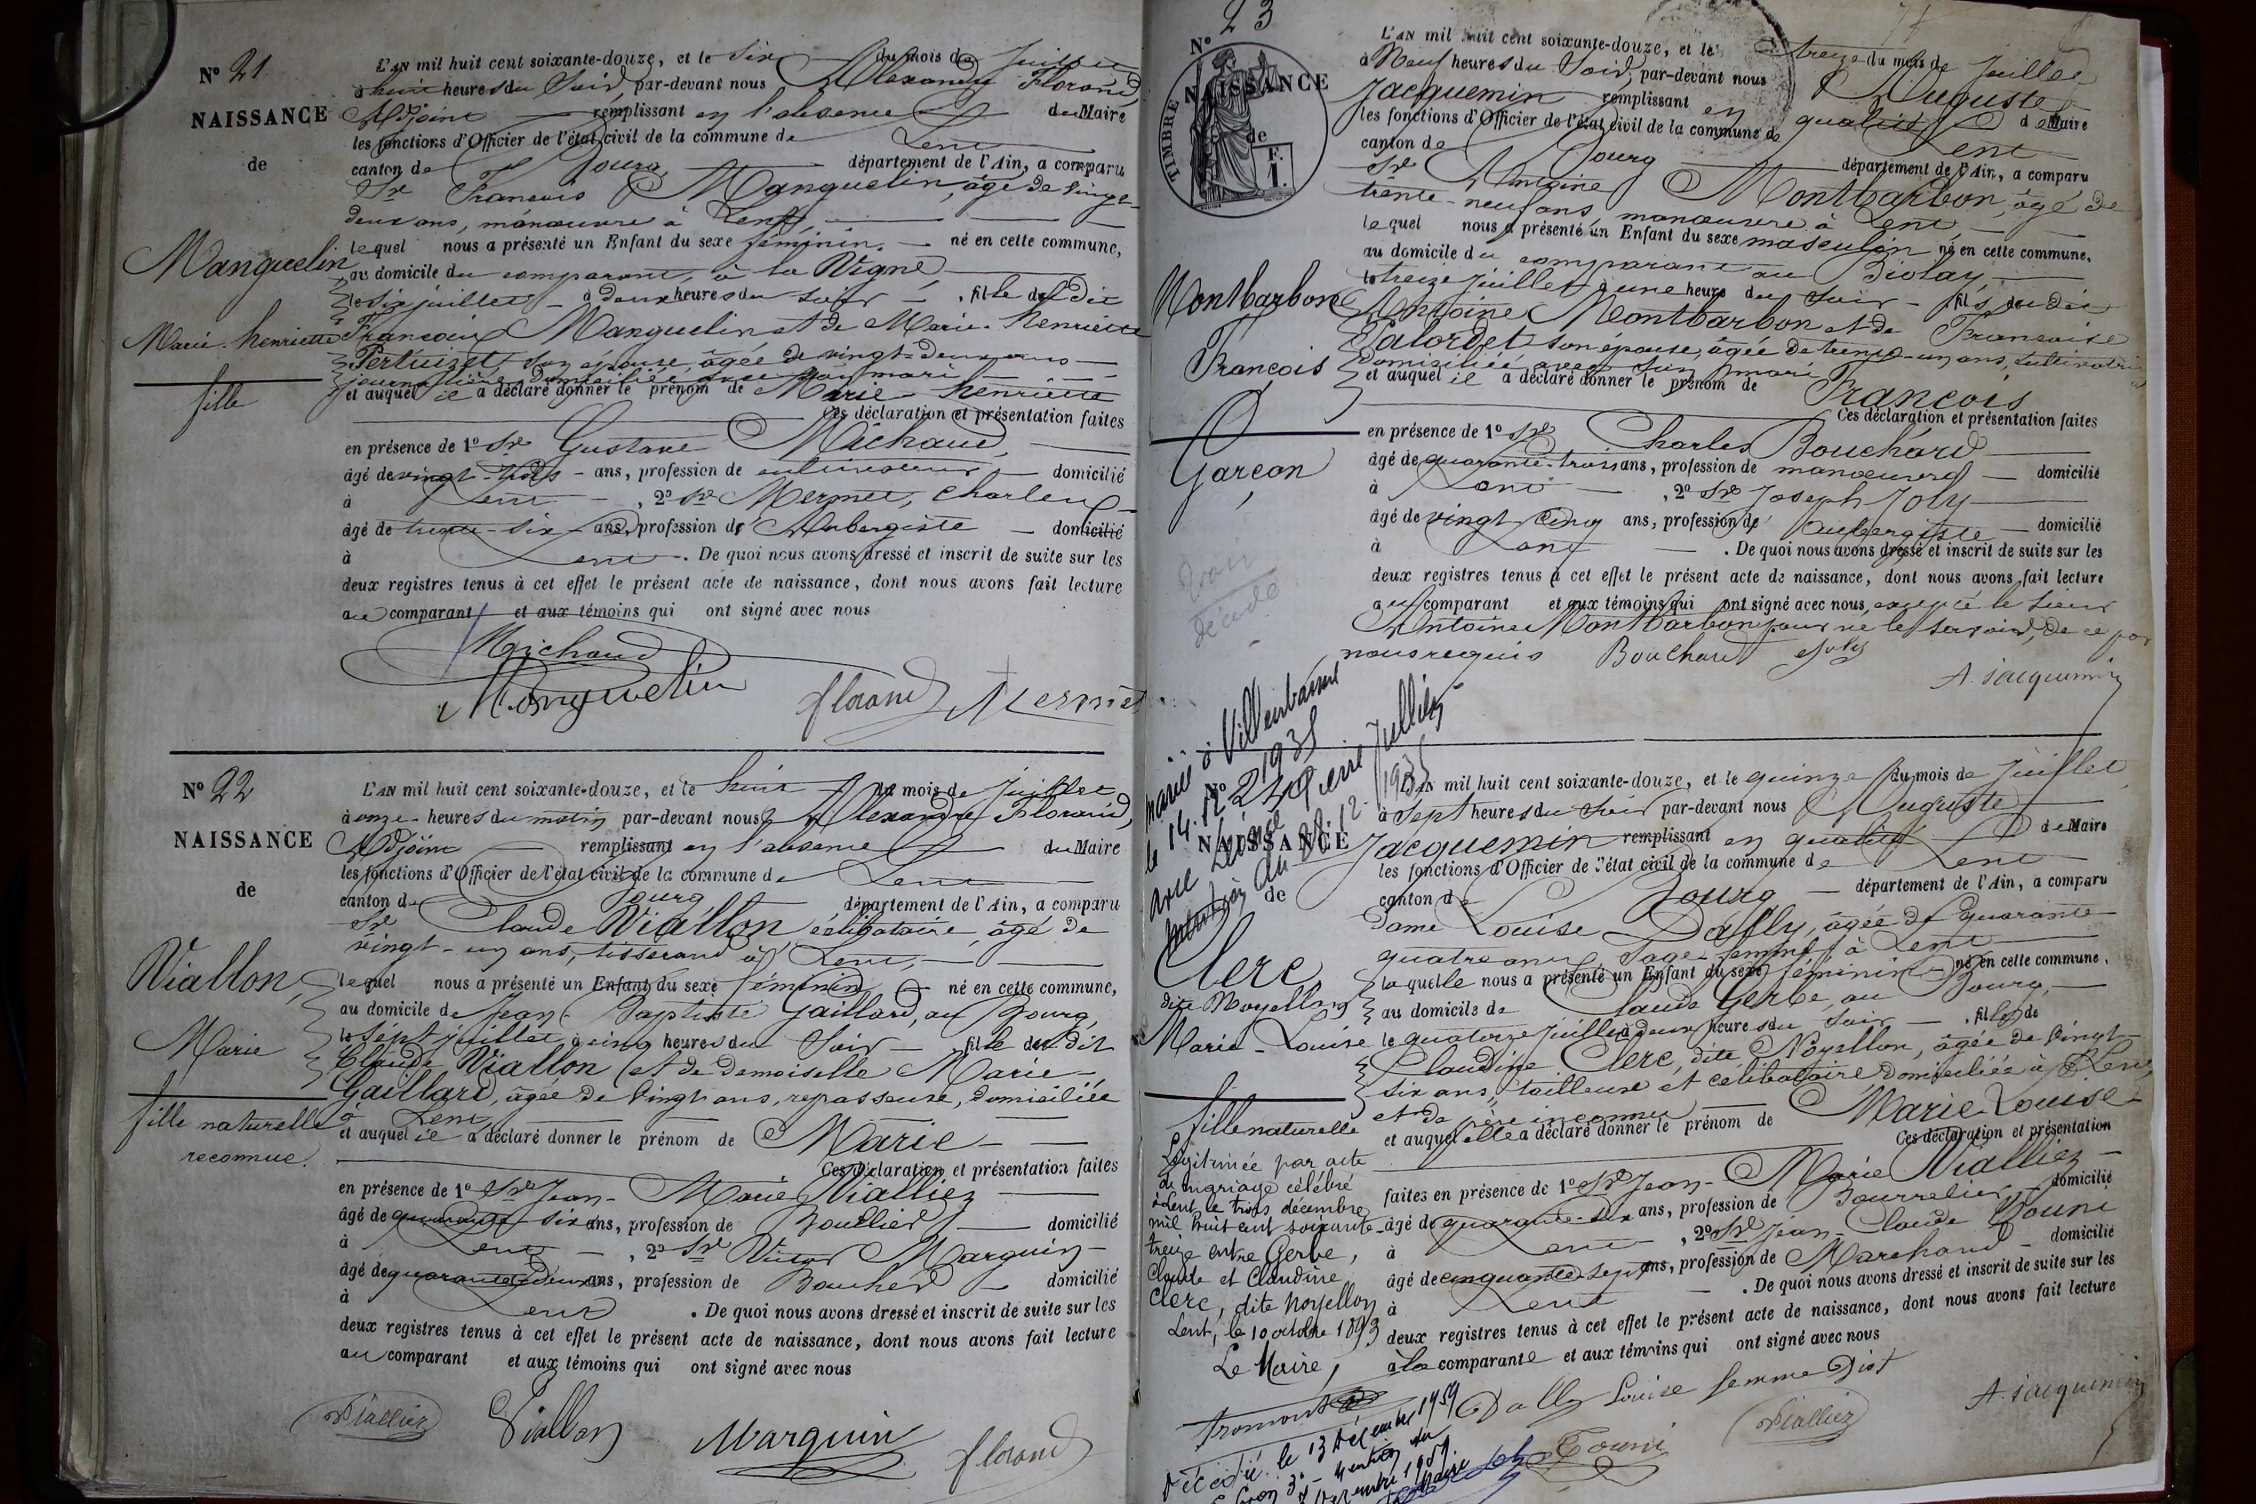 N° 21
NAISSANCE
de
Manguelin
Marie-henriette
fille
L'AN mil huit cent soixante-douze, et le Six du mois de Juillet
à huit heures du Soir, par-devant nous Alexandre Florand,
Adjoint remplissant en l'absence du Maire
les fonctions d'Officier de l'état civil de la commune de Lent
canton de Bourg département de l'Ain, a comparu
Sr François Manguelin, âgé de vingt-
deux ans, manœuvre à Lent,
lequel nous a présenté un Enfant du sexe féminin, né en cette commune,
au domicile du comparant, à la Vigne
le six juillet à deux heures du soir, fille du dit
François Manguelin et de Marie-henriette
Pertuizet, son épouse, âgée de vingt-deux ans
journalière, domiciliée avec son mari
et auquel il a déclaré donner le prénom de Marie-henriette
Ces déclaration et présentation faites
en présence de 1° Sr Gustave Michaud,
âgé de vingt-trois ans, profession de cultivateur domicilié
à Lent, 2° Sr Mermet, Charles
âgé de trente-six ans, profession de Aubergiste domicilié
à Lent. De quoi nous avons dressé et inscrit de suite sur les
deux registres tenus à cet effet le présent acte de naissance, dont nous avons fait lecture
au comparant et aux témoins qui ont signé avec nous
Michaud
Manguelin florand Mermet
N° 22
NAISSANCE
de
Viallon,
Marie
fille naturelle
reconnue.
L'AN mil huit cent soixante-douze, et le huit du mois de Juillet
à onze heures du matin par-devant nous Alexandre Florand,
Adjoint remplissant en l'absence du Maire
les fonctions d'Officier de l'état civil de la commune de Lent
canton de Bourg département de l'Ain, a comparu
Sr Claude Viallon, célibataire, âgé de
vingt-un ans, tisserand à Lent,
lequel nous a présenté un Enfant du sexe féminin né en cette commune,
au domicile de Jean-Baptiste Gaillard, au Bourg,
le sept juillet à cinq heures du Soir fille du dit
Claude Viallon et de demoiselle Marie
Gaillard, âgée de vingt ans, repasseuse, domiciliée
à Lent,
et auquel il a déclaré donner le prénom de Marie
Ces déclaration et présentation faites
en présence de 1° Sr Jean-Marie Vialliez
âgé de quarante-six ans, profession de Bourrelier domicilié
à Lent, 2° Sr Victor Marguin
âgé de quarante-deux ans, profession de Boucher domicilié
à Lent. De quoi nous avons dressé et inscrit de suite sur les
deux registres tenus à cet effet le présent acte de naissance, dont nous avons fait lecture
au comparant et aux témoins qui ont signé avec nous
Vialliez Viallon Marguin florand
N° 23
NAISSANCE
de
TIMBRE
F.
1.
Montbarbon
François
Garçon
L'AN mil huit cent soixante-douze, et le treize du mois de Juillet
à Neuf heures du Soir, par-devant nous Auguste
Jacquemin remplissant en qualité de Maire
les fonctions d'Officier de l'état civil de la commune de Lent
canton de Bourg département de l'Ain, a comparu
Sr Antoine Montbarbon, âgé de
trente-neuf ans, manœuvre à Lent
lequel nous a présenté un Enfant du sexe masculin né en cette commune,
au domicile du comparant au Biolay
le treize juillet à une heure du soir fils du dit
Antoine Montbarbon et de Françoise
Palordet son épouse, âgée de trente-un ans, cultivatrice
domiciliée avec son mari
et auquel il a déclaré donner le prénom de François
Ces déclaration et présentation faites
en présence de 1° Sr Charles Bouchard
âgé de quarante-trois ans, profession de manœuvre domicilié
à Lent, 2° Sr Joseph Joly
âgé de vingt cinq ans, profession de aubergiste domicilié
à Lent. De quoi nous avons dressé et inscrit de suite sur les
deux registres tenus à cet effet le présent acte de naissance, dont nous avons fait lecture
au comparant et aux témoins qui ont signé avec nous, excepté le sieur
Antoine Montbarbon pour ne le savoir, de ce par
nous requis Bouchard Joly
A. Jacquemin
marié à Villeurbanne
le 14.12.1935
avec Pierre Jullien
Mention du 28.12.1935
N° 24
NAISSANCE
de
Clerc
dite Noyellon
Marie-Louise
fille naturelle
Légitimée par acte
de mariage célébré
à Lent le trois décembre
mil huit cent soixante-
treize entre Gerbe,
Claude et Claudine
Clerc, dite Noyellon
Lent, le 10 octobre 1893
Le Maire,
Décédé le 13 Décembre 1959
L'AN mil huit cent soixante-douze, et le quinze du mois de Juillet
à Sept heures du soir par-devant nous Auguste
Jacquemin remplissant en qualité de Maire
les fonctions d'Officier de l'état civil de la commune de Lent
canton de Bourg département de l'Ain, a comparu
Dame Louise Dally, âgée de quarante
quatre ans, Sage-femme à Lent
laquelle nous a présenté un Enfant du sexe féminin né en cette commune,
au domicile de Claude Gerbe, au Bourg,
le quatorze juillet à deux heures du soir fille de
Claudine Clerc, dite Noyellon, âgée de vingt-
six ans, tailleuse et célibataire domiciliée à Lent
et de père inconnu
et auquel elle a déclaré donner le prénom de Marie-Louise
Ces déclaration et présentation
faites en présence de 1° Sr Jean-Marie Vialliez
âgé de quarante-six ans, profession de Bourrelier domicilié
à Lent, 2° Sr Jean-Claude Touni
âgé de cinquante-sept ans, profession de Marchand domicilié
à Lent. De quoi nous avons dressé et inscrit de suite sur les
deux registres tenus à cet effet le présent acte de naissance, dont nous avons fait lecture
à la comparante et aux témoins qui ont signé avec nous
Dally Louise femme Diot
Touni Vialliez A. Jacquemin